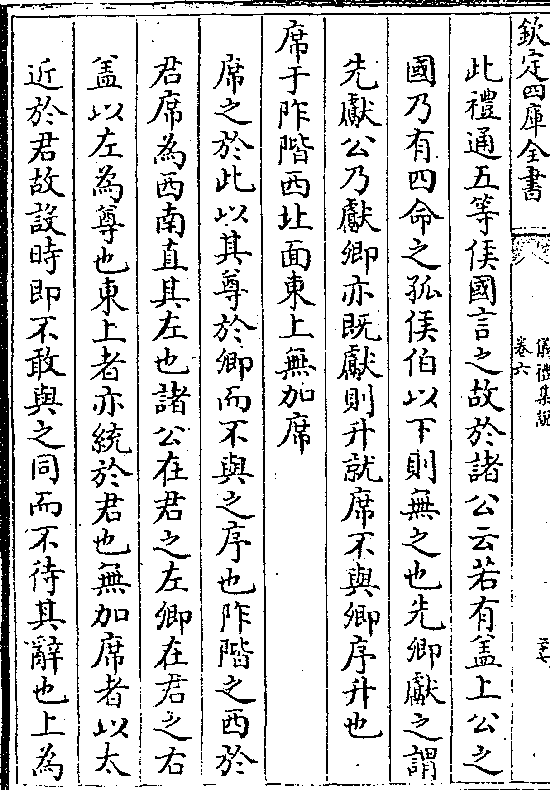 欽定四庫全書
儀禮集說
卷六
此禮通五等侯國言之故於諸公云若有盖上公之
國乃有四命之孤侯伯以下則無之也先卿獻之謂
先獻公乃獻卿亦既獻則升就席不與卿序升也
席于阼階西北面東上無加席
席之於此以其尊於卿而不與之序也阼階之西於
君席為西南直其左也諸公在君之左卿在君之右
盖以左為尊也東上者亦統於君也無加席者以太
近於君故設時即不敢與之同而不待其辭也上為